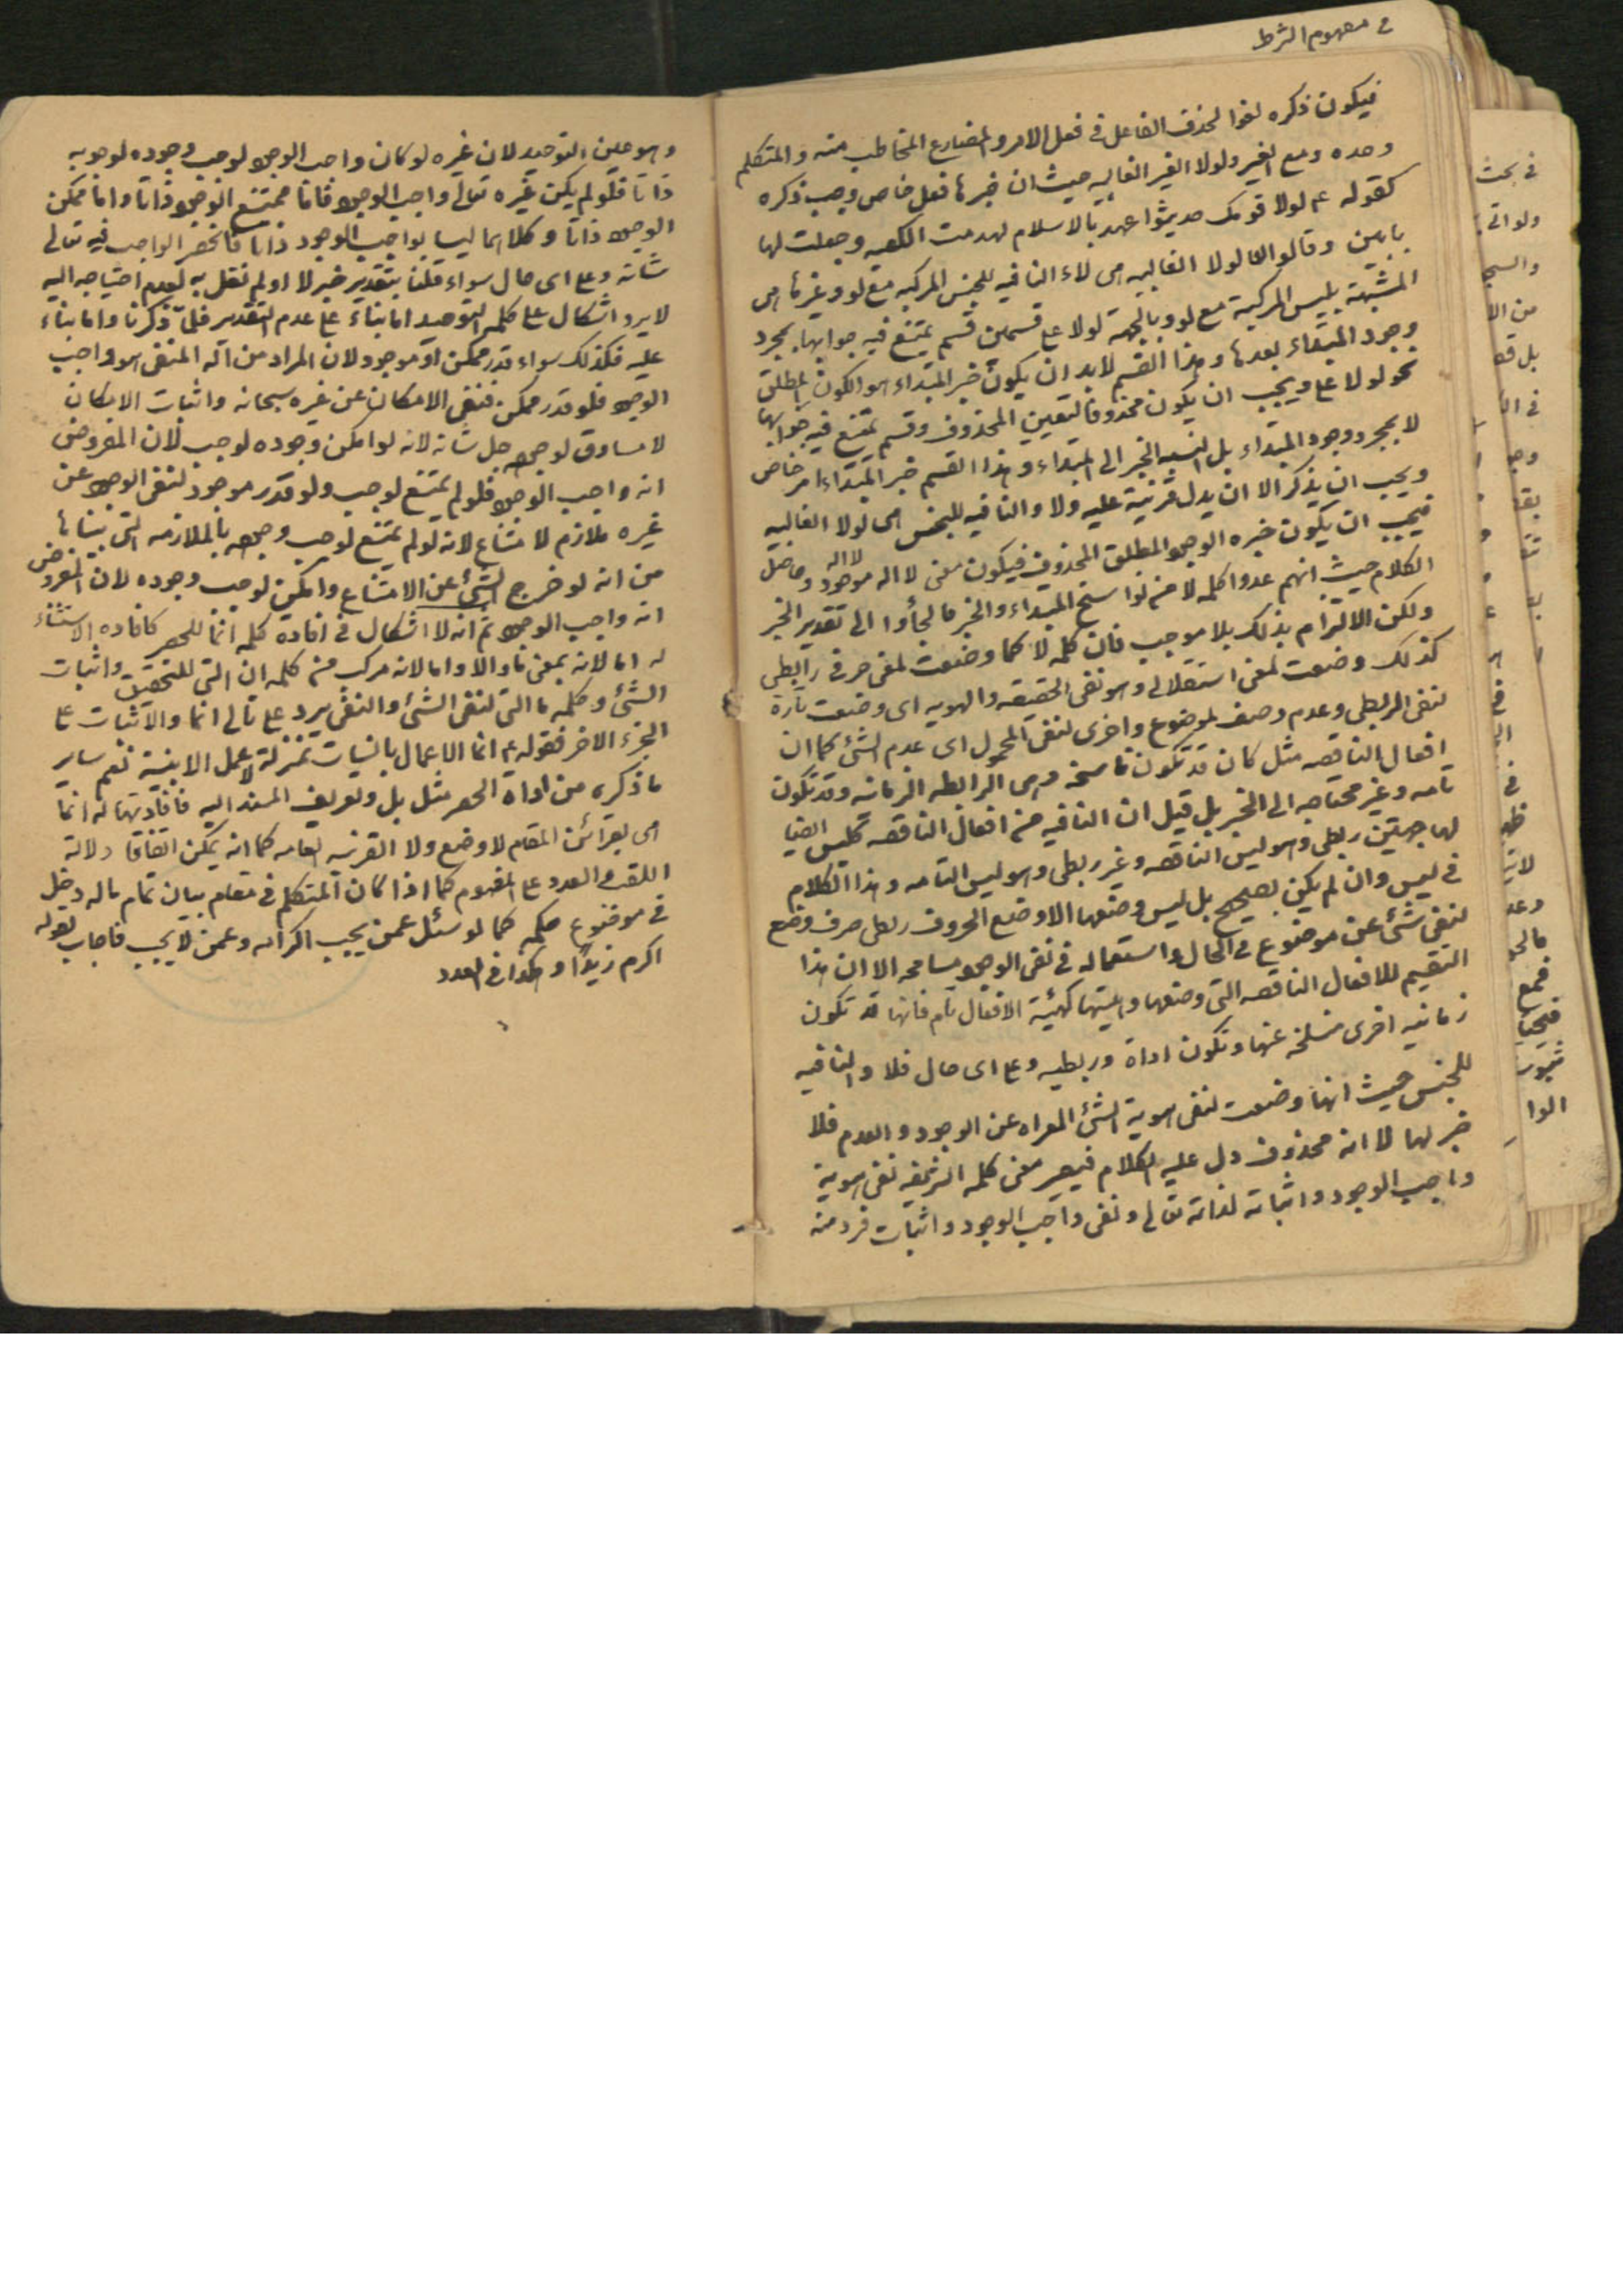 في مفهوم الشرط
فيكون ذكره لغوا لحذف الفاعل في فعل الامر والمضارع المخاطب منه والمتكلم
وحده ومع الغير ولولا الغير الغالبيه حيث ان خبرها فعل خاص وجب ذكره
كقوله ع لولا قومك حديثوا عهد بالاسلام لهدمت الكعبه وجعلت لها
بابين وقالوا لولا الغالبيه هى لاء النافيه للجنس المركبه مع لو وغيرها هى
المشبهة بليس المركبة مع لو وبالجمله لولا على قسمين قسم يمتنع فيه جوابها بمجرد
وجود المبتداء بعدها وهذا القسم لابد ان يكون خبر المبتداء هو الكون المطلق
نحو لولا على ويجب ان يكون محذوفا لتعين المحذوف وقسم يمتنع فيه جوابها
لا بمجرد وجود المبتداء بل لنسبه الخبر الى المبتداء وهذا القسم خبر المبتداء امر خاص
ويجب ان يذكر الا ان يدل قرنية عليه ولا والنافيه للجنس هى لولا الغالبيه
فيجب ان يكون خبره الوجود المطلق المحذوف فيكون معنى لا اله لا اله موجود وحاصل
الكلام حيث انهم عدوا كلمه لا من نواسخ المبتداء والخبر فالجأوا الى تقدير الخبر
ولكن الالتزام بذلك بلا موجب فان كلمه لا كما وضعت لمعنى حرفي رابطى
كذلك وضعت لمعنى استقلالى وهو نفى الحقيقه والهويه اى وضعت تارة
لنفى الربطى وعدم وصف لموضوع واخرى لنفى المحمول اى عدم الشئ كما ان
افعال الناقصه مثل كان قد تكون ناسخه وهى الرابطه الزمانيه وقد تكون
تامه وغير محتاجه الى الخبر بل قيل ان النافيه من افعال الناقصه كليس ايضا
لها جهتين ربطى وهو ليس الناقصه وغير ربطى وهو ليس التامه وهذا الكلام
في ليس وان لم يكن بصحيح بل ليس وضعها الا وضع الحروف ربطى صرف وضع
لنفى شئ عن موضوع في الحال واستعماله في نفى الوجود مسامحه الا ان هذا
التقسيم للافعال الناقصه التى وضعها وهيئتها كهيئة الافعال تام فانها قد تكون
زمانيه اخرى منسلخه عنها وتكون اداة وربطيه وعلى اى حال فلا والنافيه
للجنس حيث انها وضعت لنفى هوية الشئ المعراه عن الوجود والعدم فلا
خبر لها لا انه محذوف دل عليه الكلام فيصير معنى كلمه الشريفه نفى هوية
واجب الوجود واثباته لذاته تعالى ونفى واجب الوجود واثبات فرد منه
وهو عين التوحيد لان غيره لو كان واجب الوجود لوجب وجوده لوجوبه
ذاتا فلو لم يكن غيره تعالى واجب الوجود فاما ممتنع الوجود ذاتا واما ممكن
الوجود ذاتا وكلاهما ليسا بواجب الوجود ذاتا فانحصر الواجب فيه تعالى
شانه وعلى اى حال سواء قلنا بتقدير خبر لا او لم نقل به لعدم احتياجه اليه
لا يرد اشكال على كلمه التوحيد اما بناء على عدم التقدير فلما ذكرنا واما بناء
عليه فكذلك سواء قدر ممكن او موجود لان المراد من اله المنفى هو واجب
الوجود فلو قدر ممكن فنفى الامكان عن غيره سبحانه واثبات الامكان
لا مساوق لوجوده جل شانه لانه لو امكن وجوده لوجب لان المفروض
انه واجب الوجود فلو لم يمتنع لوجب ولو قدر موجود لنفى الوجود عن
غيره ملازم لامتناع لانه لو لم يمتنع لوجب وجوده بالملازمه التى بيناها
من انه لو خرج الشئ عن الامتناع وامكن لوجب وجوده لان المفروض
انه واجب الوجود ثم انه لا اشكال في افاده كلمه انما للحصر كافاده الاستثناء
له اما لانه بمعنى ما والا واما لانه مركب من كلمه ان التى للتحقيق واثبات
الشئ وكلمه ما التى لنفى الشئ والنفى يرد على تالى انما والاثبات على
الجزء الاخر فقوله ع انما الاعمال بالنيات بمنزلة لا عمل الا بنية نعم ساير
ما ذكره من اداة الحصر مثل بل وتعريف المسند اليه فافادتها له انما
هى بقرائن المقام لا وضع ولا القرنيه العامه كما انه يمكن اتفاقا دلالة
اللقب والعدد على المفهوم كما اذا كان المتكلم في مقام بيان تمام ماله دخل
في موضوع حكمه كما لو سئل عمن يجب اكرامه وعمن لا يجب فاجاب بقوله
اكرم زيدًا وهكذا في العدد